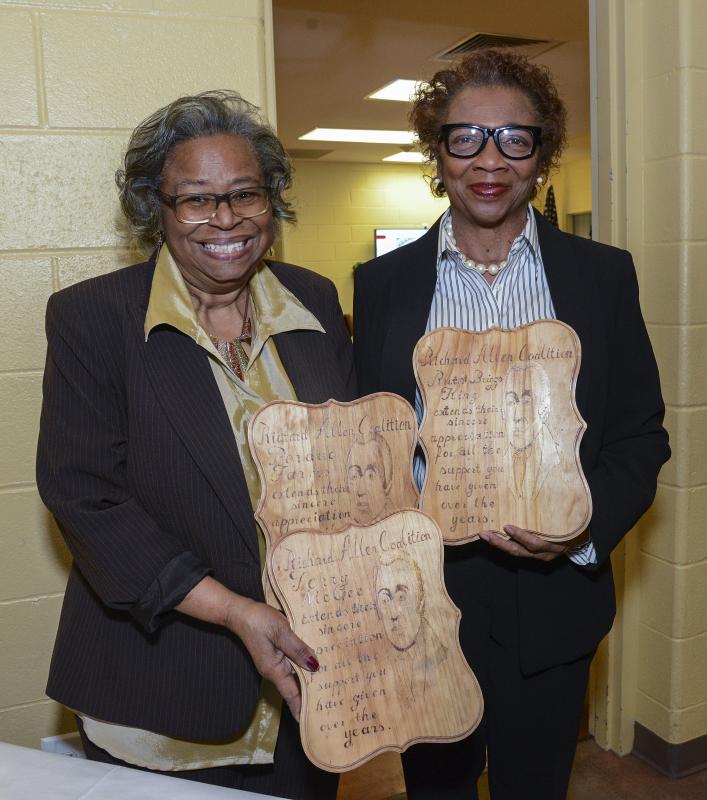 Richard Allen Coalition
Loraine
Farris
extends their
sincere
appreciation
Richard Allen Coalition
Terry
McGee
extends their
sincere
appreciation
for all the
support you
have given
over the
years.
Richard Allen Coalition
Ruth Briggs
King
extends their
sincere
appreciation
for all the
support you
have given
over the
years.